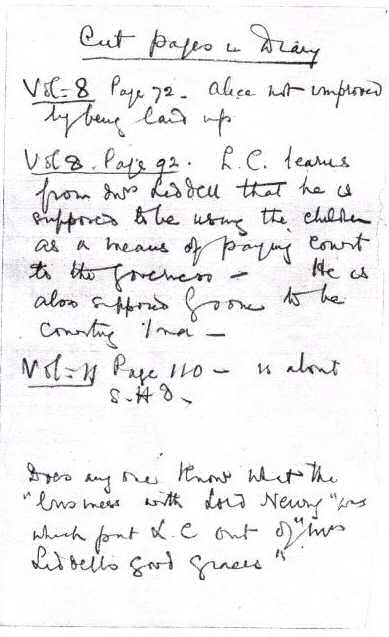 Cut pages in Diary
Vol: 8 Page 72. Alice not improved
by being laid up
Vol 8. Page 92. L.C. learns
from Mrs Liddell that he is
supposed to be using the children
as a means of paying court
to the governess — He is
also supposed by some to be
courting Ina —
Vol: 11 Page 110 — is about
S.H.D.
Does any one know what the
"business with Lord Newry" was
which put L.C out of "Mrs
Liddell's good graces"